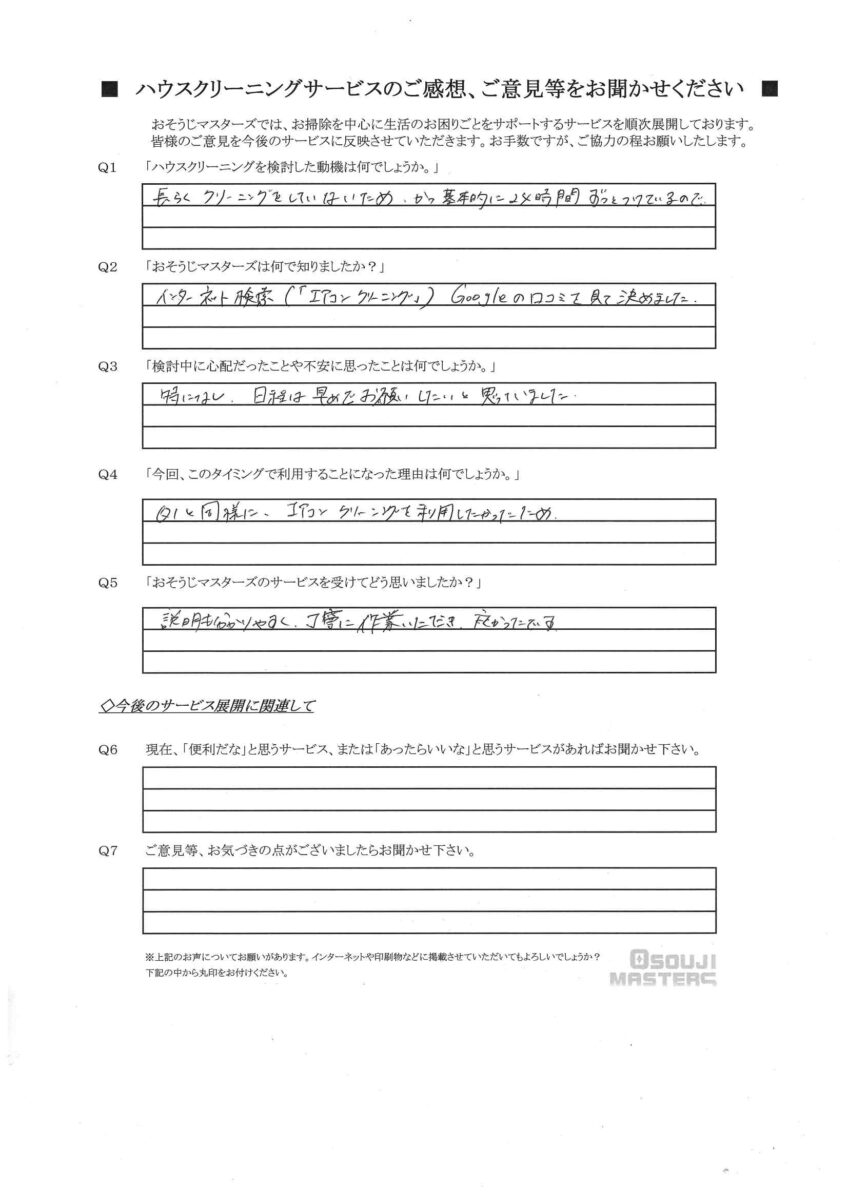 ■ ハウスクリーニングサービスのご感想、ご意見等をお聞かせください ■
おそうじマスターズでは、お掃除を中心に生活のお困りごとをサポートするサービスを順次展開しております。
皆様のご意見を今後のサービスに反映させていただきます。お手数ですが、ご協力の程お願いしたします。
Q1 「ハウスクリーニングを検討した動機は何でしょうか。」
長らく クリーニングをしていないため、かつ 基本的に24時間 ずっとつけているので。
Q2 「おそうじマスターズは何で知りましたか？」
インターネット検索(「エアコンクリーニング」) Googleの口コミを見て決めました。
Q3 「検討中に心配だったことや不安に思ったことは何でしょうか。」
特になし。日程は早めでお願いしたいと思っていました。
Q4 「今回、このタイミングで利用することになった理由は何でしょうか。」
Q1と同様に、エアコンクリーニングを利用したかったため。
Q5 「おそうじマスターズのサービスを受けてどう思いましたか？」
説明も分かりやすく、丁寧に作業いただき、良かったです
◇今後のサービス展開に関連して
Q6 現在、「便利だな」と思うサービス、または「あったらいいな」と思うサービスがあればお聞かせ下さい。
Q7 ご意見等、お気づきの点がございましたらお聞かせ下さい。
※上記のお声についてお願いがあります。インターネットや印刷物などに掲載させていただいてもよろしいでしょうか？
下記の中から丸印をお付けください。
OSOUJI
MASTERS